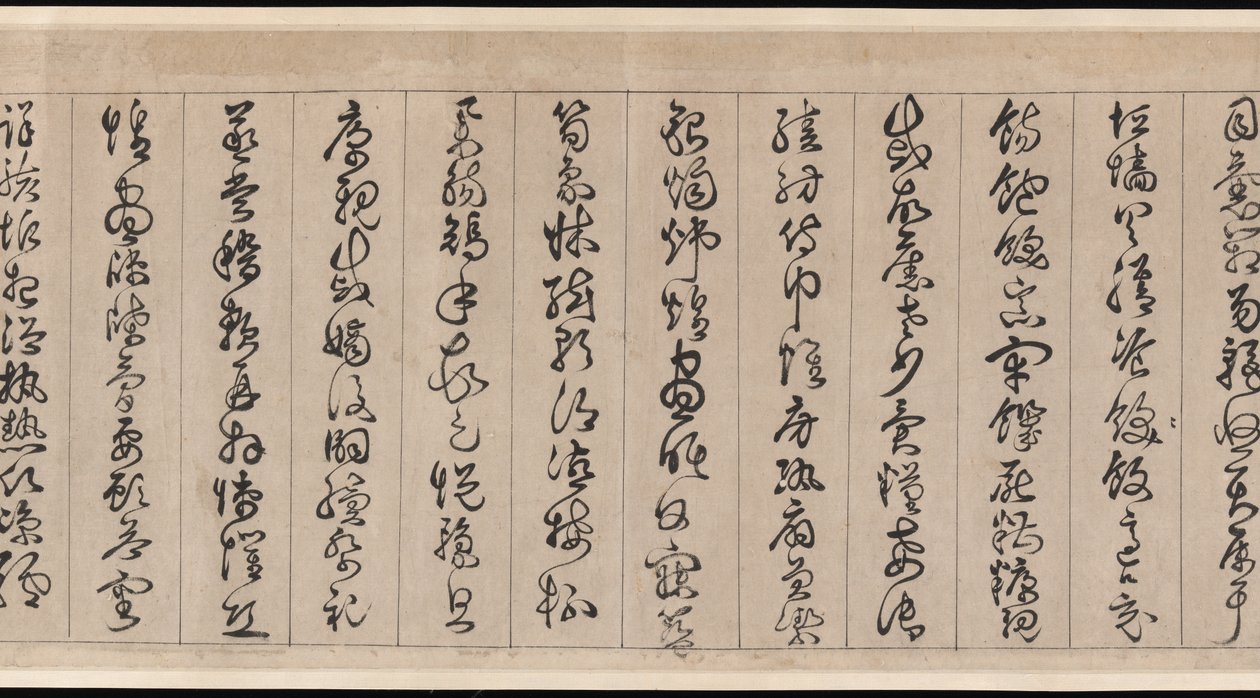 目囊箱易輶攸畏屬耳
垣墻具膳飡飯飯適口充
腸飽飫烹宰饑厭糟糠親
戚故舊老少異糧妾御
績紡侍巾帷房紈扇圓潔
銀燭煒煌晝眠夕寐藍
筍象床弦歌酒讌接杯
舉觴矯手頓足悅豫且
康親戚嫡後嗣續祭祀
蒸嘗稽顙再拜悚懼恐
惶牋牒簡要顧答審
詳骸垢想浴執熱願涼驢